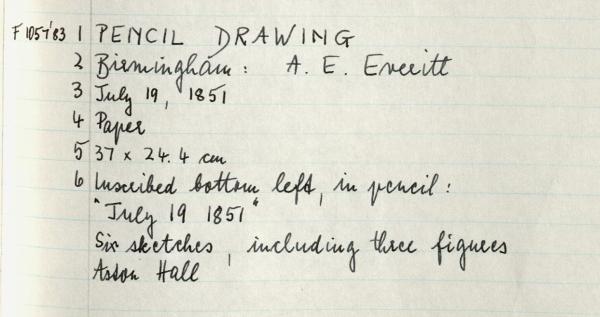 F 1054'83 1 PENCIL DRAWING
2 Birmingham: A. E. Everitt
3 July 19, 1851
4 Paper
5 37 x 24.4 cm
6 Inscribed bottom left, in pencil:
"July 19 1851"
Six sketches, including three figures
Aston Hall